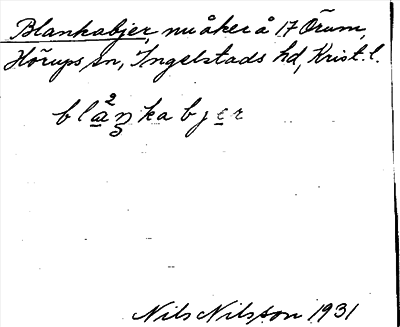 Blankabjer, nu åker å 17 Örum,
Hörups sn, Ingelstads hd, Krist. l.
blå²ŋkabjer
Nils Nilsson 1931